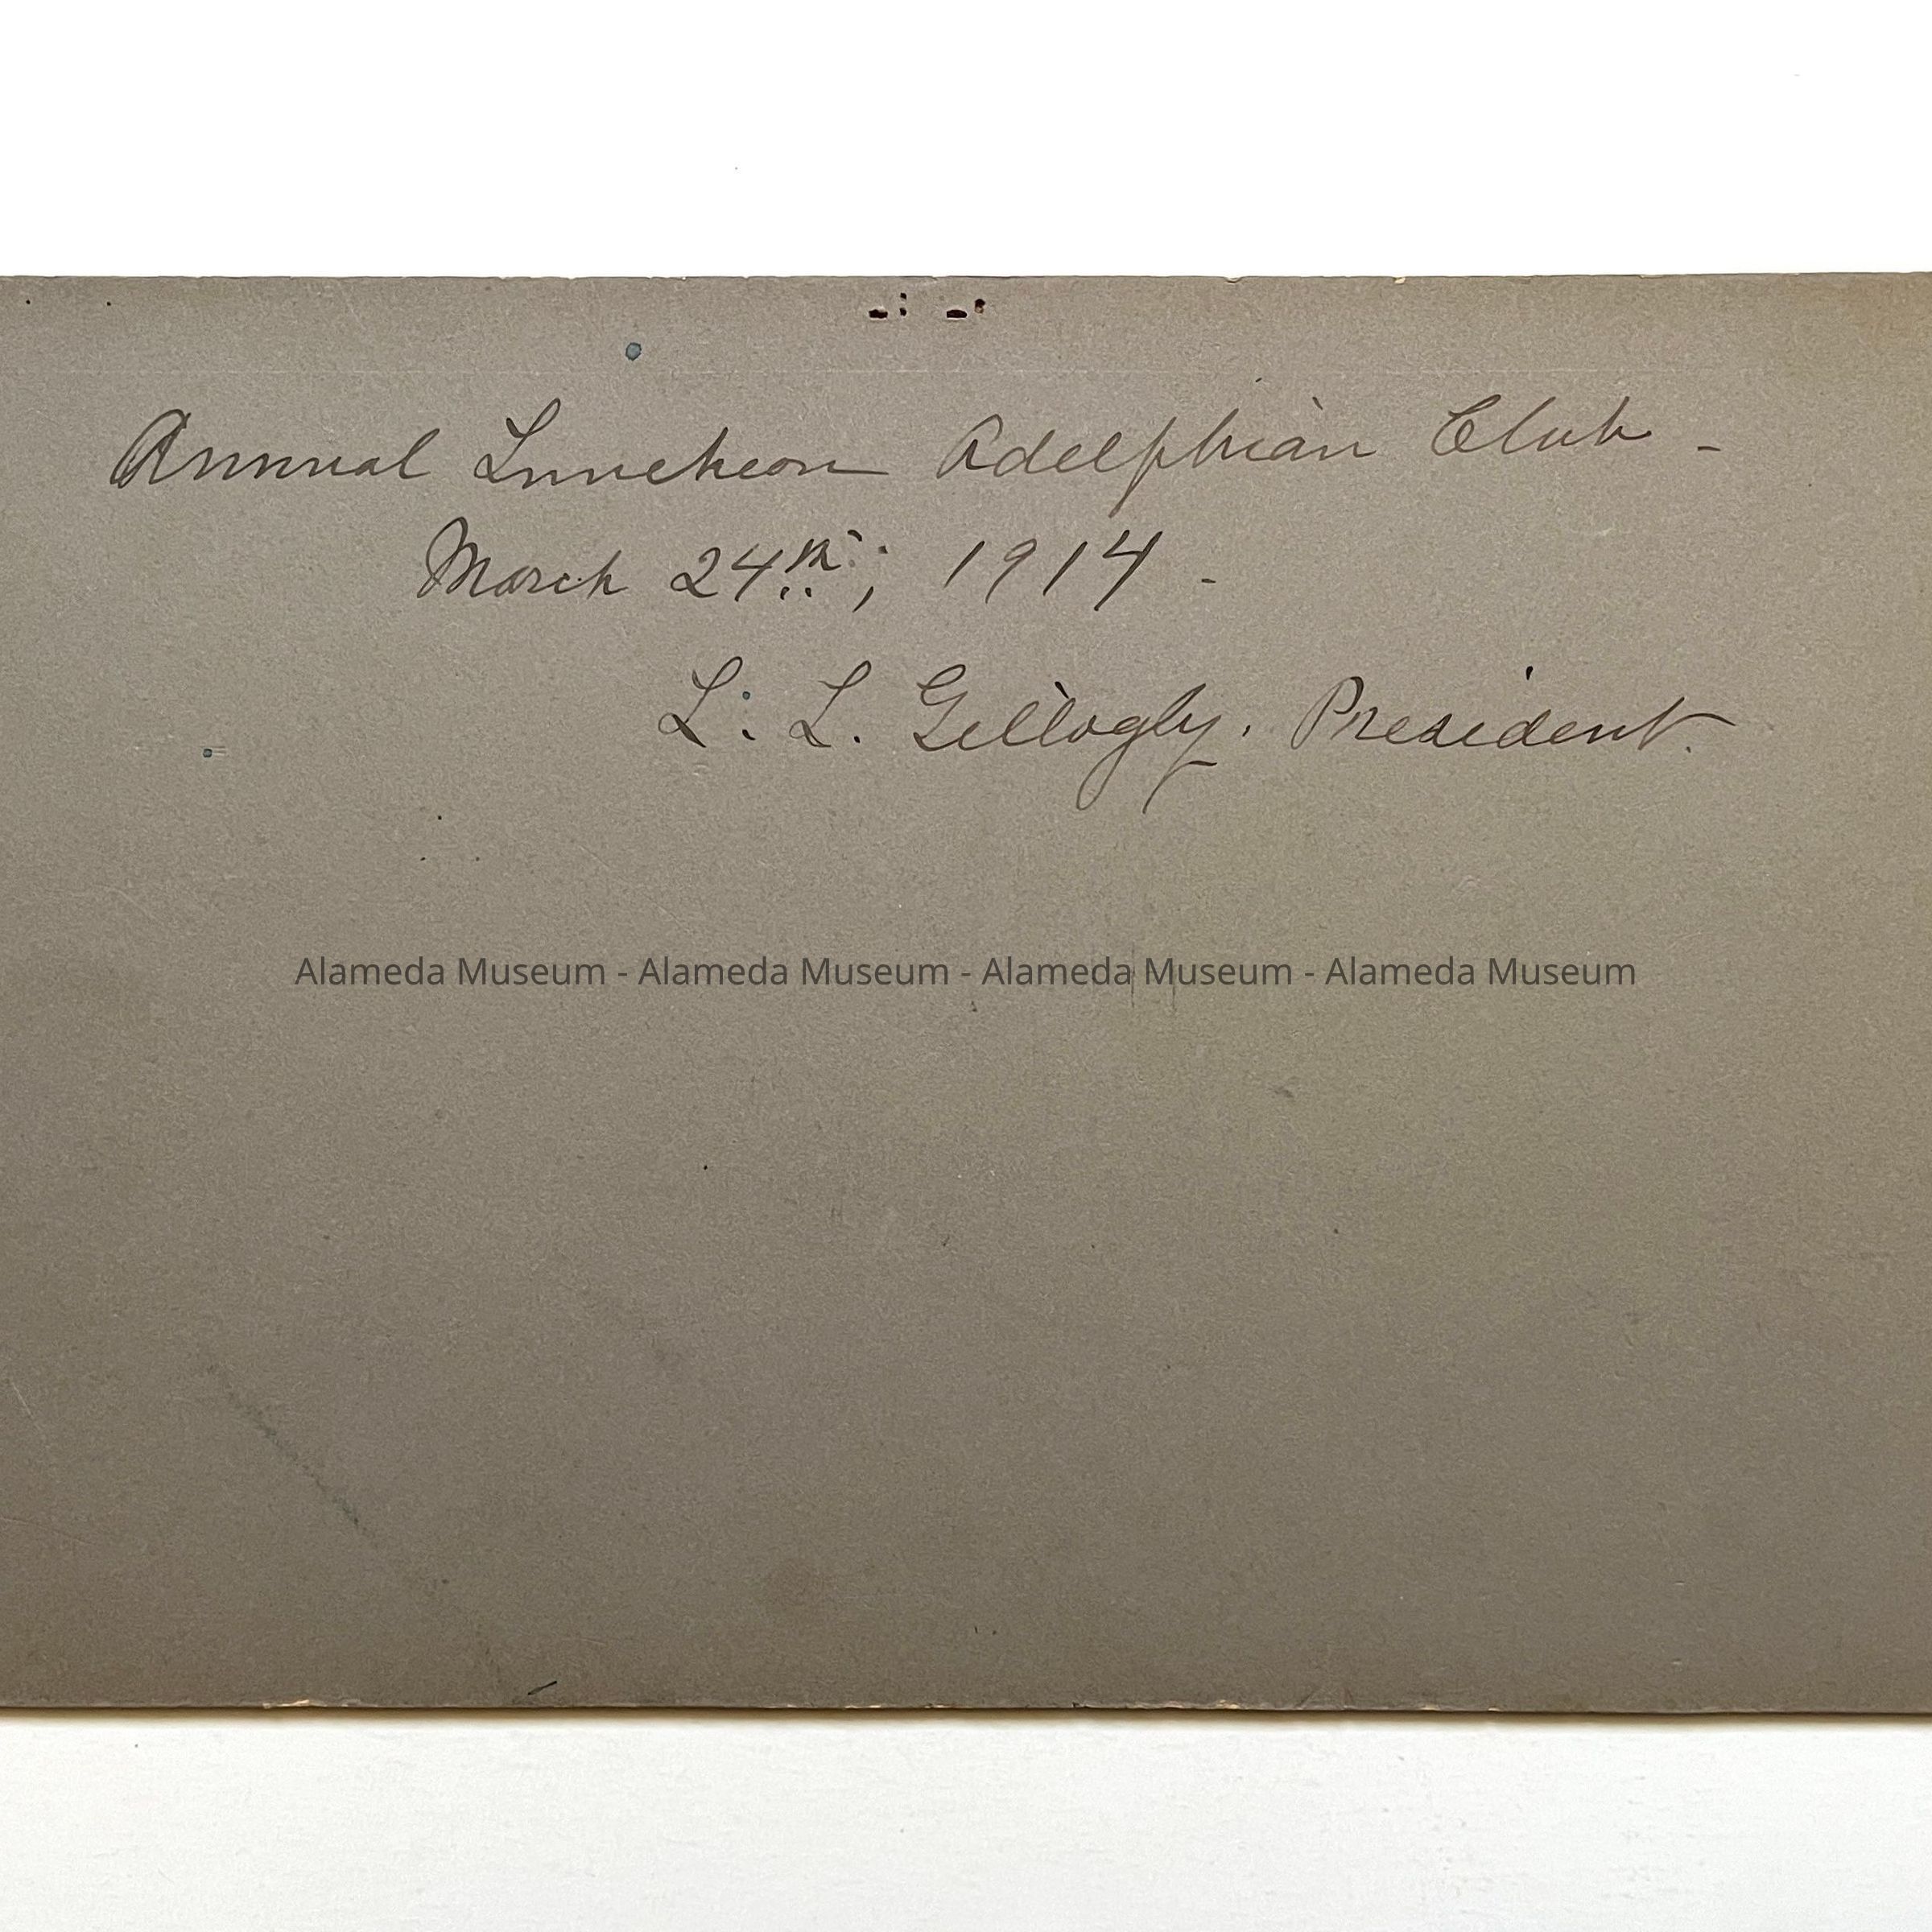 Annual Luncheon Adelphian Club -
March 24th; 1914 -
L. L. Gillogly. President.
Alameda Museum - Alameda Museum - Alameda Museum - Alameda Museum